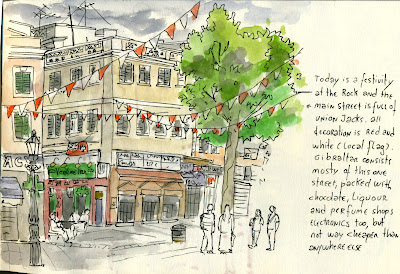 Today is a festivity
at the Rock and the
main street is full of
union Jacks. all
decoration is red and
white (Local flag).
Gibraltar consists
mosty of this one
street, packed with
chocolate, Liquour
and perfume shops
electronics too, but
not way cheaper than
anywhere else